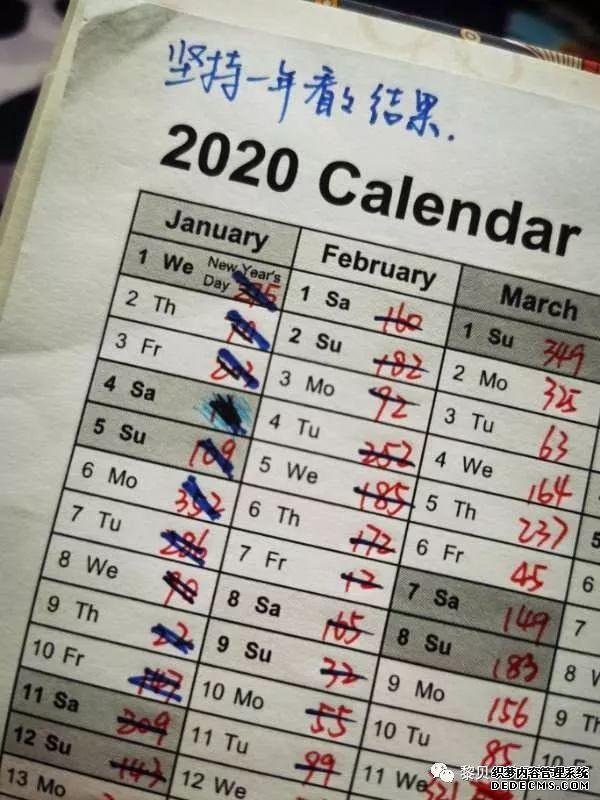 坚持一年看看结果.
2020 Calendar
January February March
1 We New Year's Day 275 1 Sa 160 1 Su 349
2 Th 2 Su 182 2 Mo 325
3 Fr 3 Mo 92 3 Tu 63
4 Sa 4 Tu 252 4 We 164
5 Su 109 5 We 185 5 Th 237
6 Mo 352 6 Th 172 6 Fr 45
7 Tu 286 7 Fr 12 7 Sa 149
8 We 90 8 Sa 165 8 Su 183
9 Th 22 9 Su 32 9 Mo 156
10 Fr 10 Mo 55 10 Tu 85
11 Sa 209 11 Tu 99 11 We
12 Su 143 12 We
13 Mo
5
6
7
8 W
9 Th
10 Fr
黎贝
织梦内容管理系统
DEDECMS.COM